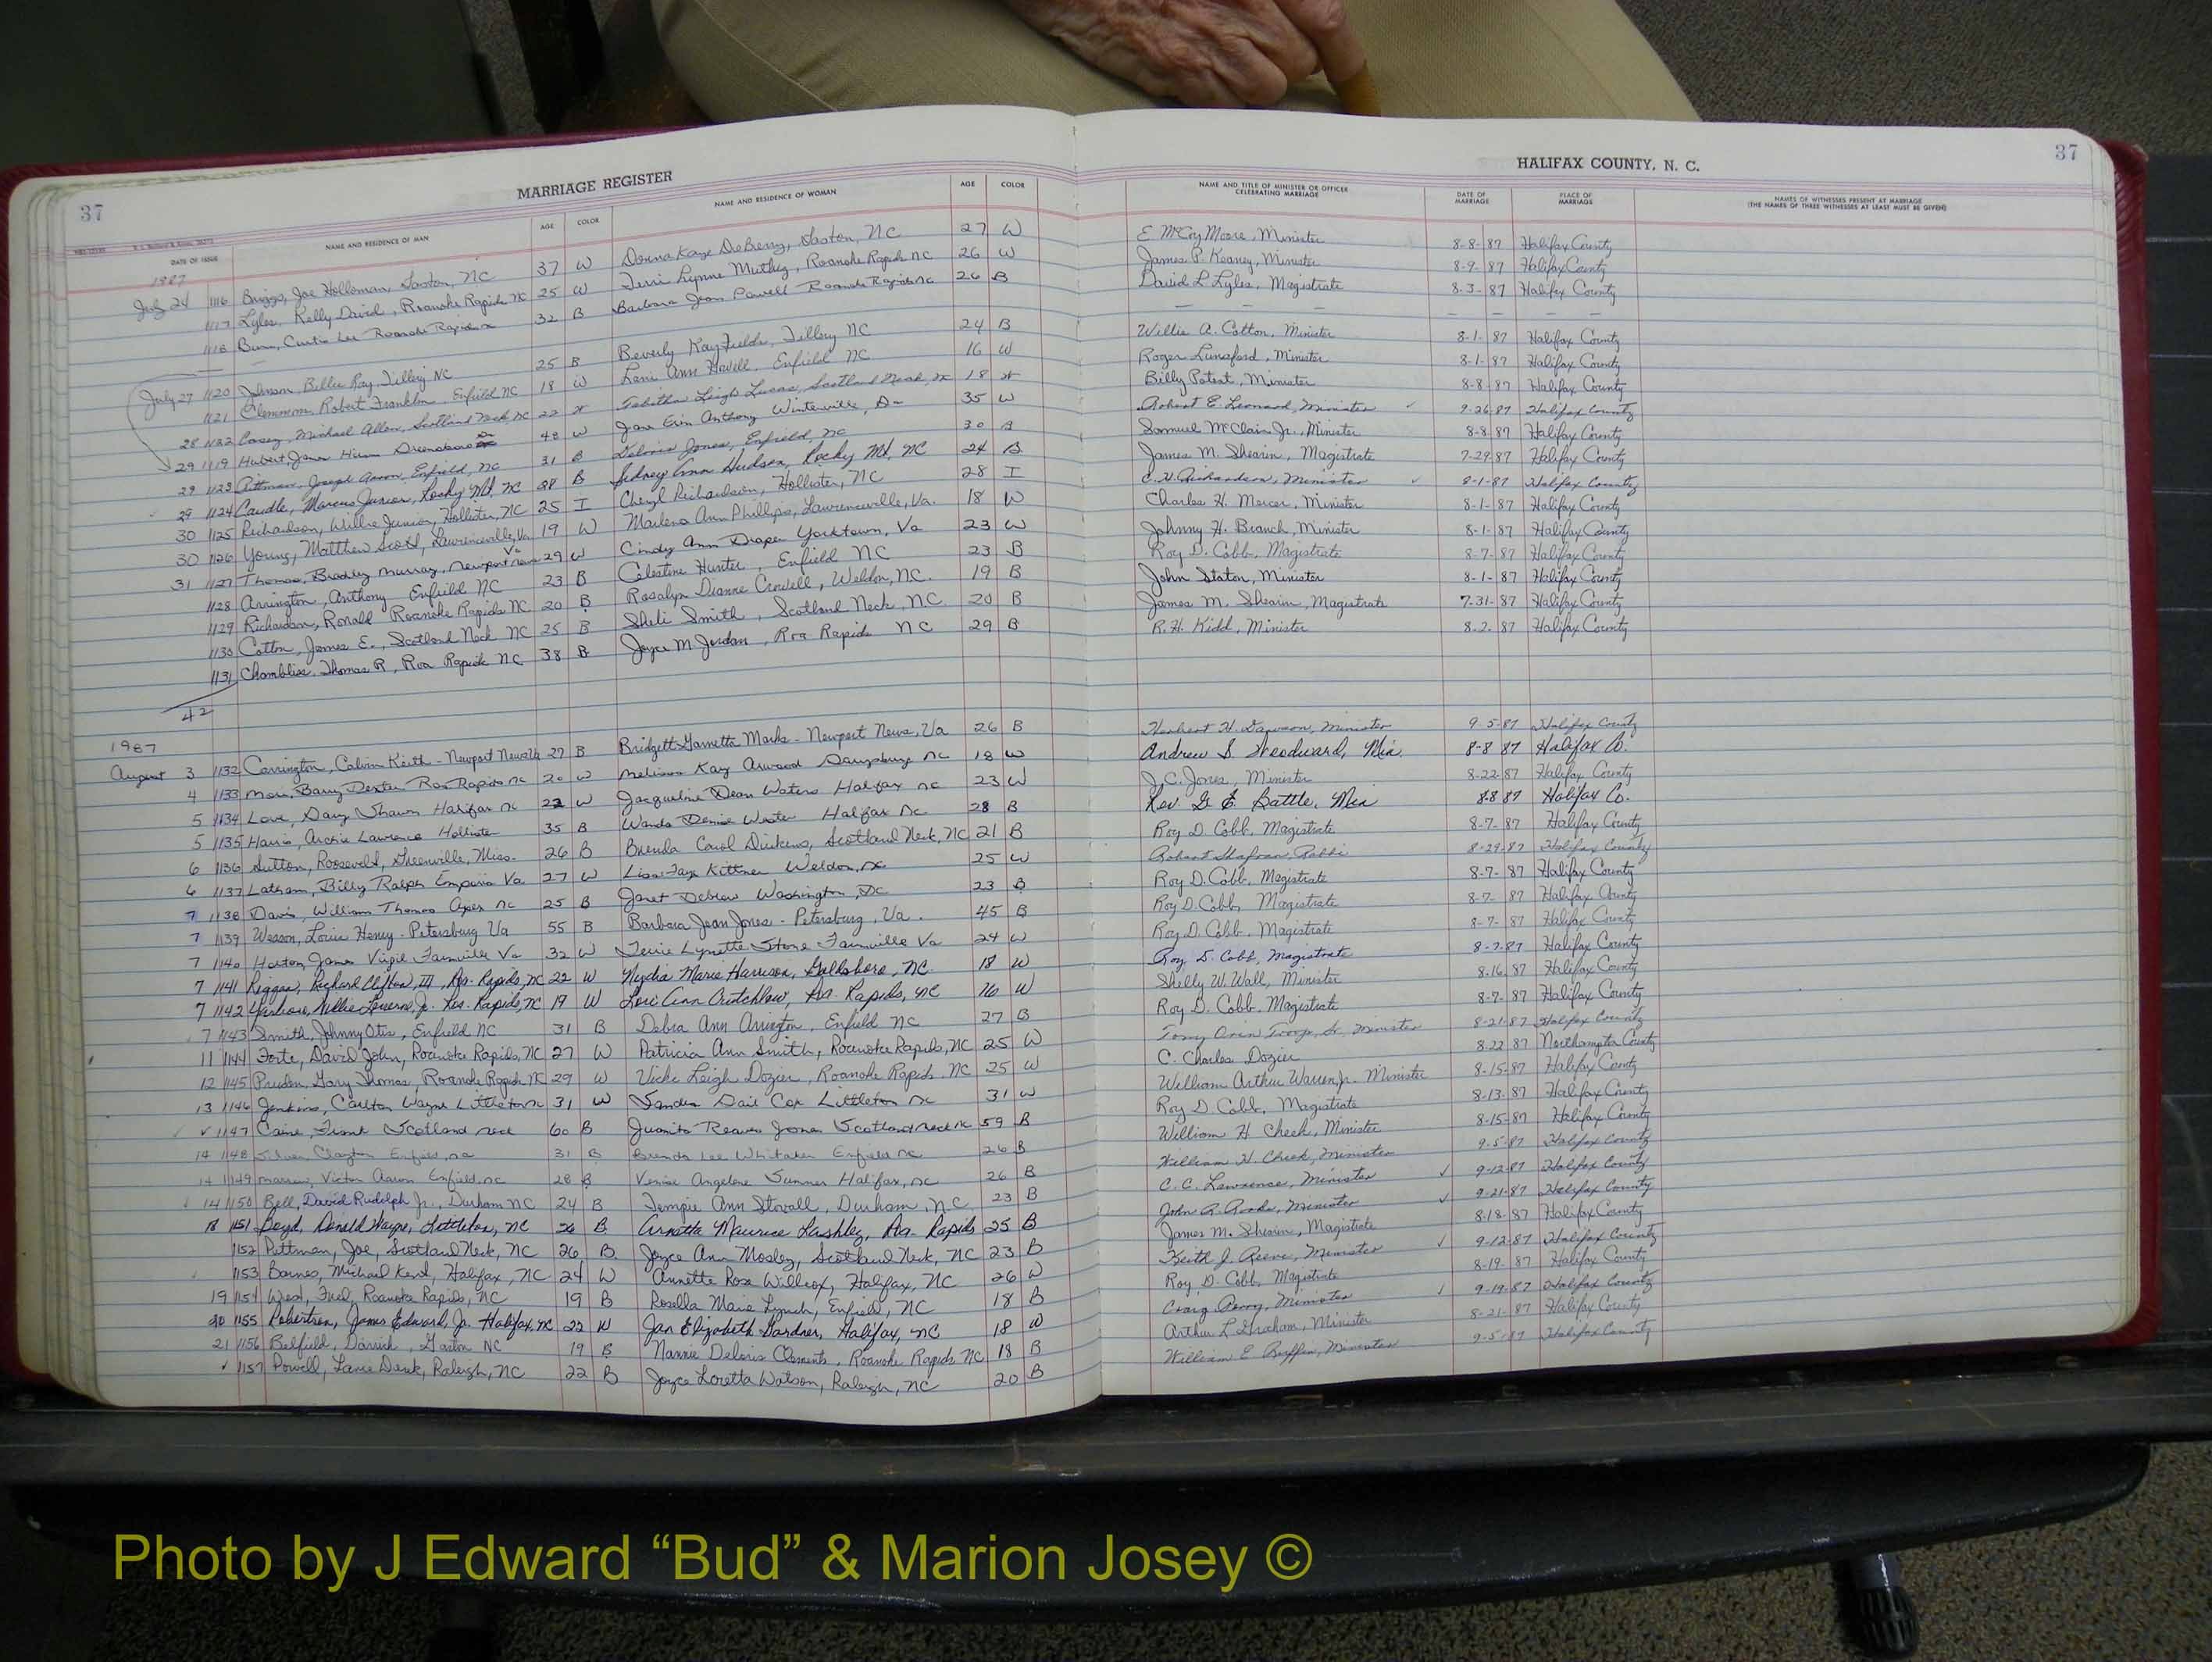 37
MARRIAGE REGISTER
HALIFAX COUNTY, N. C.
37
DATE OF ISSUE NAME AND RESIDENCE OF MAN AGE COLOR NAME AND RESIDENCE OF WOMAN AGE COLOR NAME AND TITLE OF MINISTER OR OFFICER CELEBRATING MARRIAGE DATE OF MARRIAGE PLACE OF MARRIAGE NAMES OF WITNESSES PRESENT AT MARRIAGE (THE NAMES OF THREE WITNESSES AT LEAST MUST BE GIVEN)
1987
July 24 1116 Briggs, Joe Holloman Gaston, NC 37 W Donna Kaye DeBerry, Gaston, NC 27 W E McCoy Moore, Minister 8-8-87 Halifax County
1117 Lyles, Kelly David, Roanoke Rapids NC 25 W Terri Lynne Muthig, Roanoke Rapids NC 26 W James P. Kearney, Minister 8-9-87 Halifax County
1118 Curtis Lee Roanoke Rapids 32 B Barbara Jean Powell Roanoke Rapids NC 26 B David L. Lyles, Magistrate 8-3-87 Halifax County
July 27 1120 Johnson, Billie Ray, Tillery NC 25 B Beverly Kay Fields, Tillery NC 24 B Willie A. Cotton, Minister 8-1-87 Halifax County
1121 Clemmons, Robert Franklin, Enfield NC 18 W Ann Enfield NC 16 W Roger Lunsford, Minister 8-1-87 Halifax County
28 1122 Casey, Michael Allen, Scotland Neck, NC 22 W Tabitha Leigh Lucas, Scotland Neck, NC 18 W Billy Poteat, Minister 8-8-87 Halifax County
29 1119 Hubert, James Hiram Greensboro 48 W Jane Erin Anthony Winterville, 35 W Robert E. Leonard, Minister 9-26-87 Halifax County
29 1123 Pittman, Joseph Aaron, Enfield, NC 31 B Deloris Jones, Enfield, NC 30 B Samuel McClain Jr., Minister 8-8-87 Halifax County
29 1124 Caudle, Marcus Junior, Rocky Mt. NC 28 B Sidney Ann Hudson, Rocky Mt. NC 24 B James M. Shearin, Magistrate 7-29-87 Halifax County
30 1125 Richardson, Willie Junior, Hollister, NC 25 I Cheryl Richardson, Hollister, NC 28 I C. H. Richardson, Minister 8-1-87 Halifax County
30 1126 Young, Matthew Scott, Lawrenceville, Va. 19 W Marlena Ann Phillips, Lawrenceville, Va. 18 W Charles H. Mercer, Minister 8-1-87 Halifax County
31 1127 Thomas, Bradley Murray, Newport News Va 29 W Cindy Ann Draper Yorktown, Va 23 W Johnny H. Branch, Minister 8-1-87 Halifax County
1128 Arrington, Anthony Enfield NC 23 B Celestine Hunter, Enfield NC 23 B Roy D. Cobb, Magistrate 8-7-87 Halifax County
1129 Richardson, Ronald Roanoke Rapids NC 20 B Rosalyn Dianne Crowell, Weldon, NC. 19 B John Staton, Minister 8-1-87 Halifax County
1130 Cotton, James E., Scotland Neck NC 25 B Sheli Smith, Scotland Neck, NC. 20 B James M. Shearin, Magistrate 7-31-87 Halifax County
1131 Chambliss, Thomas R, Roa Rapids NC 38 B Joyce M Jordan, Roa Rapids NC 29 B R. H. Kidd, Minister 8-2-87 Halifax County
42
1987
August 3 1132 Carrington, Calvin Keith - Newport News Va 27 B Bridgett Garnetta Marks - Newport News, Va 26 B Herbert H. Dawson, Minister 9-5-87 Halifax County
4 1133 Barry Dexter Roa Rapids NC 20 W Melissa Kay Arwood Dansbury NC 18 W Andrew S. Woodward, Min. 8-8 87 Halifax Co.
5 1134 Love, Shawn Halifax NC 22 W Jacqueline Dean Waters Halifax NC 23 W J.C. Jones, Minister 8-22-87 Halifax County
5 1135 Harris, Archie Lawrence Hollister 35 B Wanda Denise Halifax NC 28 B Rev. G. E. Battle, Min 8-8 87 Halifax Co.
6 1136 Sutton, Roosevelt, Greenville, Miss. 26 B Brenda Carol Dickens, Scotland Neck, NC 21 B Roy D. Cobb, Magistrate 8-7-87 Halifax County
6 1137 Latham, Billy Ralph Emporia Va 27 W Lisa Faye Kittner Weldon, NC 25 W Robert Shafran, Rabbi 8-29-87 Halifax County
7 1138 Davis, William Thomas NC 25 B Janet Debrew Washington, DC 23 B Roy D. Cobb, Magistrate 8-7-87 Halifax County
7 1139 Wesson, Louis Henry - Petersburg Va 55 B Barbara Jean Jones - Petersburg, Va. 45 B Roy D. Cobb, Magistrate 8-7-87 Halifax County
7 1140 Horton, James Virgil Farmville Va 32 W Terrie Lynette Stone Farmville Va 24 W Roy D. Cobb, Magistrate 8-7-87 Halifax County
7 1141 Riggan, Richard Clifton, III, Roa. Rapids, NC 22 W Nydia Marie Harrison, Goldsboro, NC. 18 W Roy D. Cobb, Magistrate 8-7-87 Halifax County
7 1142 Jr. Roa. Rapids, NC 19 W Lori Ann Crutchlow, Roa. Rapids, NC 16 W Shelly W. Wall, Minister 8-16-87 Halifax County
7 1143 Smith, Johnny Otis, Enfield NC 31 B Debra Ann Arrington, Enfield NC 27 B Roy D. Cobb, Magistrate 8-7-87 Halifax County
11 1144 Forte, David John, Roanoke Rapids, NC 27 W Patricia Ann Smith, Roanoke Rapids, NC 25 W Tony Sr. Minister 8-21-87 Halifax County
12 1145 Pruden, Gary Thomas, Roanoke Rapids NC 29 W Vicki Leigh Dozier, Roanoke Rapids, NC 25 W C. Charles Dozier 8-22 87 Northampton County
13 1146 Jenkins, Carlton Wayne Littleton NC 31 W Sandra Dail Cox Littleton NC 31 W William Arthur Warren, Jr. Minister 8-15-87 Halifax County
1147 Frank Scotland Neck 60 B Juanita Reaves Jones Scotland Neck NC 59 B Roy D. Cobb, Magistrate 8-13-87 Halifax County
14 1148 Silver, Clayton Enfield, NC 31 B Brenda Lee Whitaker Enfield NC 26 B William H. Cheek, Minister 8-15-87 Halifax County
14 1149 Victor Aaron Enfield, NC 28 B Angelene Halifax, NC 26 B William H. Cheek, Minister 9-5-87 Halifax County
14 1150 Bell, David Rudolph Jr., Durham NC 24 B Tempie Ann Stovall, Durham, NC. 23 B C. C. Lawrence, Minister 9-12-87 Halifax County
18 1151 Boyd, Donald Wayne, Littleton, NC 26 B Arnetta Maurice Lashley, Roa. Rapids 25 B John R. Minister 9-21-87 Halifax County
1152 Pittman, Joe, Scotland Neck, NC 26 B Joyce Ann Mosley, Scotland Neck, NC 23 B James M. Shearin, Magistrate 8-18-87 Halifax County
1153 Barnes, Michael Kent, Halifax, NC 24 W Annette Rose Willcox, Halifax, NC 26 W Keith J. Reeve, Minister 9-12-87 Halifax County
19 1154 West, Fred, Roanoke Rapids, NC 19 B Rosella Marie Lynch, Enfield, NC 18 B Roy D. Cobb, Magistrate 8-19-87 Halifax County
20 1155 Robertson, James Edward, Jr. Halifax, NC 22 W Jan Elizabeth Gardner, Halifax, NC 18 W Craig Perry, Minister 9-19-87 Halifax County
21 1156 Belfield, Darrick, Gaston NC 19 B Nannie Deloris Clements, Roanoke Rapids, NC 18 B Arthur L. Graham, Minister 8-21-87 Halifax County
1157 Powell, Lane Derek, Raleigh, NC 22 B Joyce Loretta Watson, Raleigh, NC 20 B William E Ruffin, Minister 9-5-87 Halifax County
Photo by J Edward “Bud” & Marion Josey ©